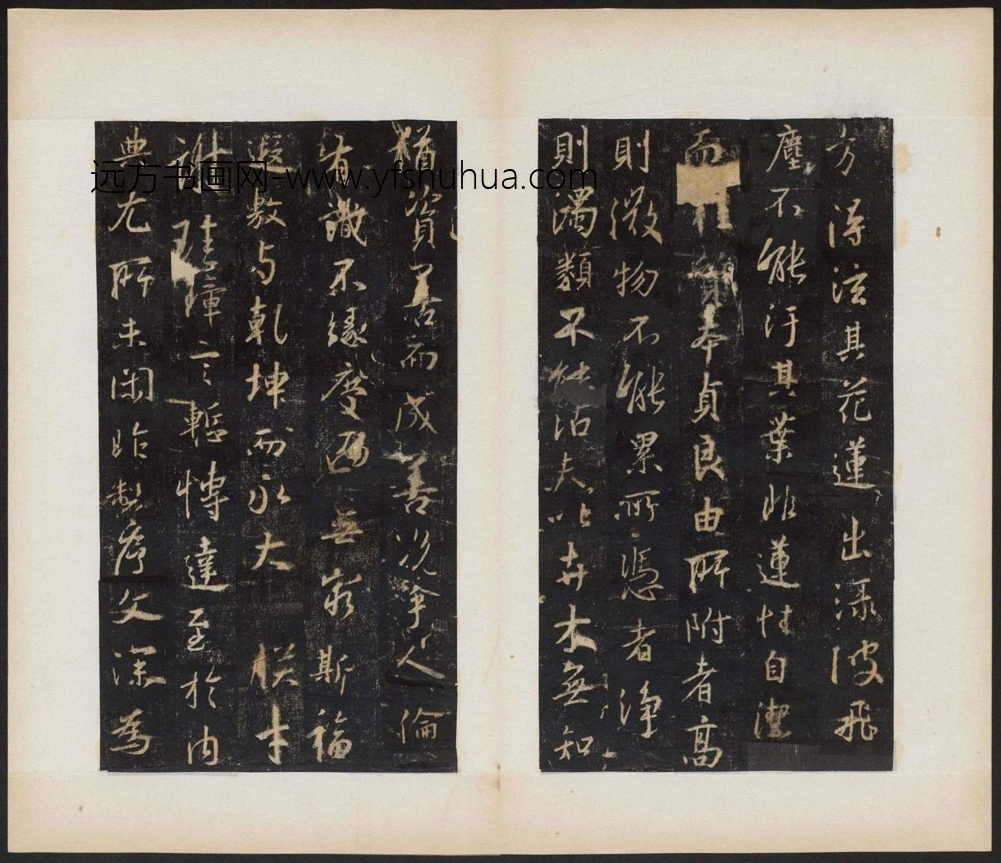 方得泫其花蓮出淥波飛
塵不能汙其葉非蓮性自潔
而桂質本貞良由所附者高
則微物不能累所憑者淨
則濁類不能沾夫以卉木無知
猶資善而成善況乎人倫
有識不緣慶无窮斯福
遐敷与乾坤而永大 朕才
謝珪璋言慙博達至於內
典尤所未閑昨製序文深為
远方书画网-www.yfshuhua.com